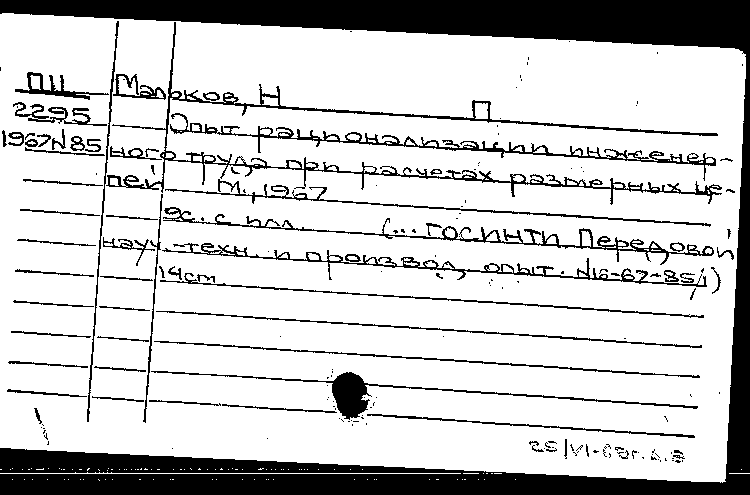 ПII Мальков, Н
П
2295 Опыт рационализации инженер-
1967N85 ного труда при расчетах размерных це-
пей М., 1967
9с. с илл. (... ГОСИНТИ Передовой
науч.-техн. и производ, опыт. N16-67-85/1)
14см.
25/VI-68г. А.В